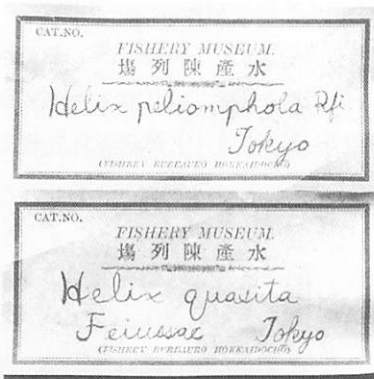 CAT.NO.
FISHERY MUSEUM.
場列陳產水
Helix peliomphola Rfi
Tokyo
(FISHERY BUREAURO HOKKAIDOCHO)
CAT.NO.
FISHERY MUSEUM.
場列陳產水
Helix quasita
Feiussac Tokyo
(FISHERY BUREAURO HOKKAIDOCHO)